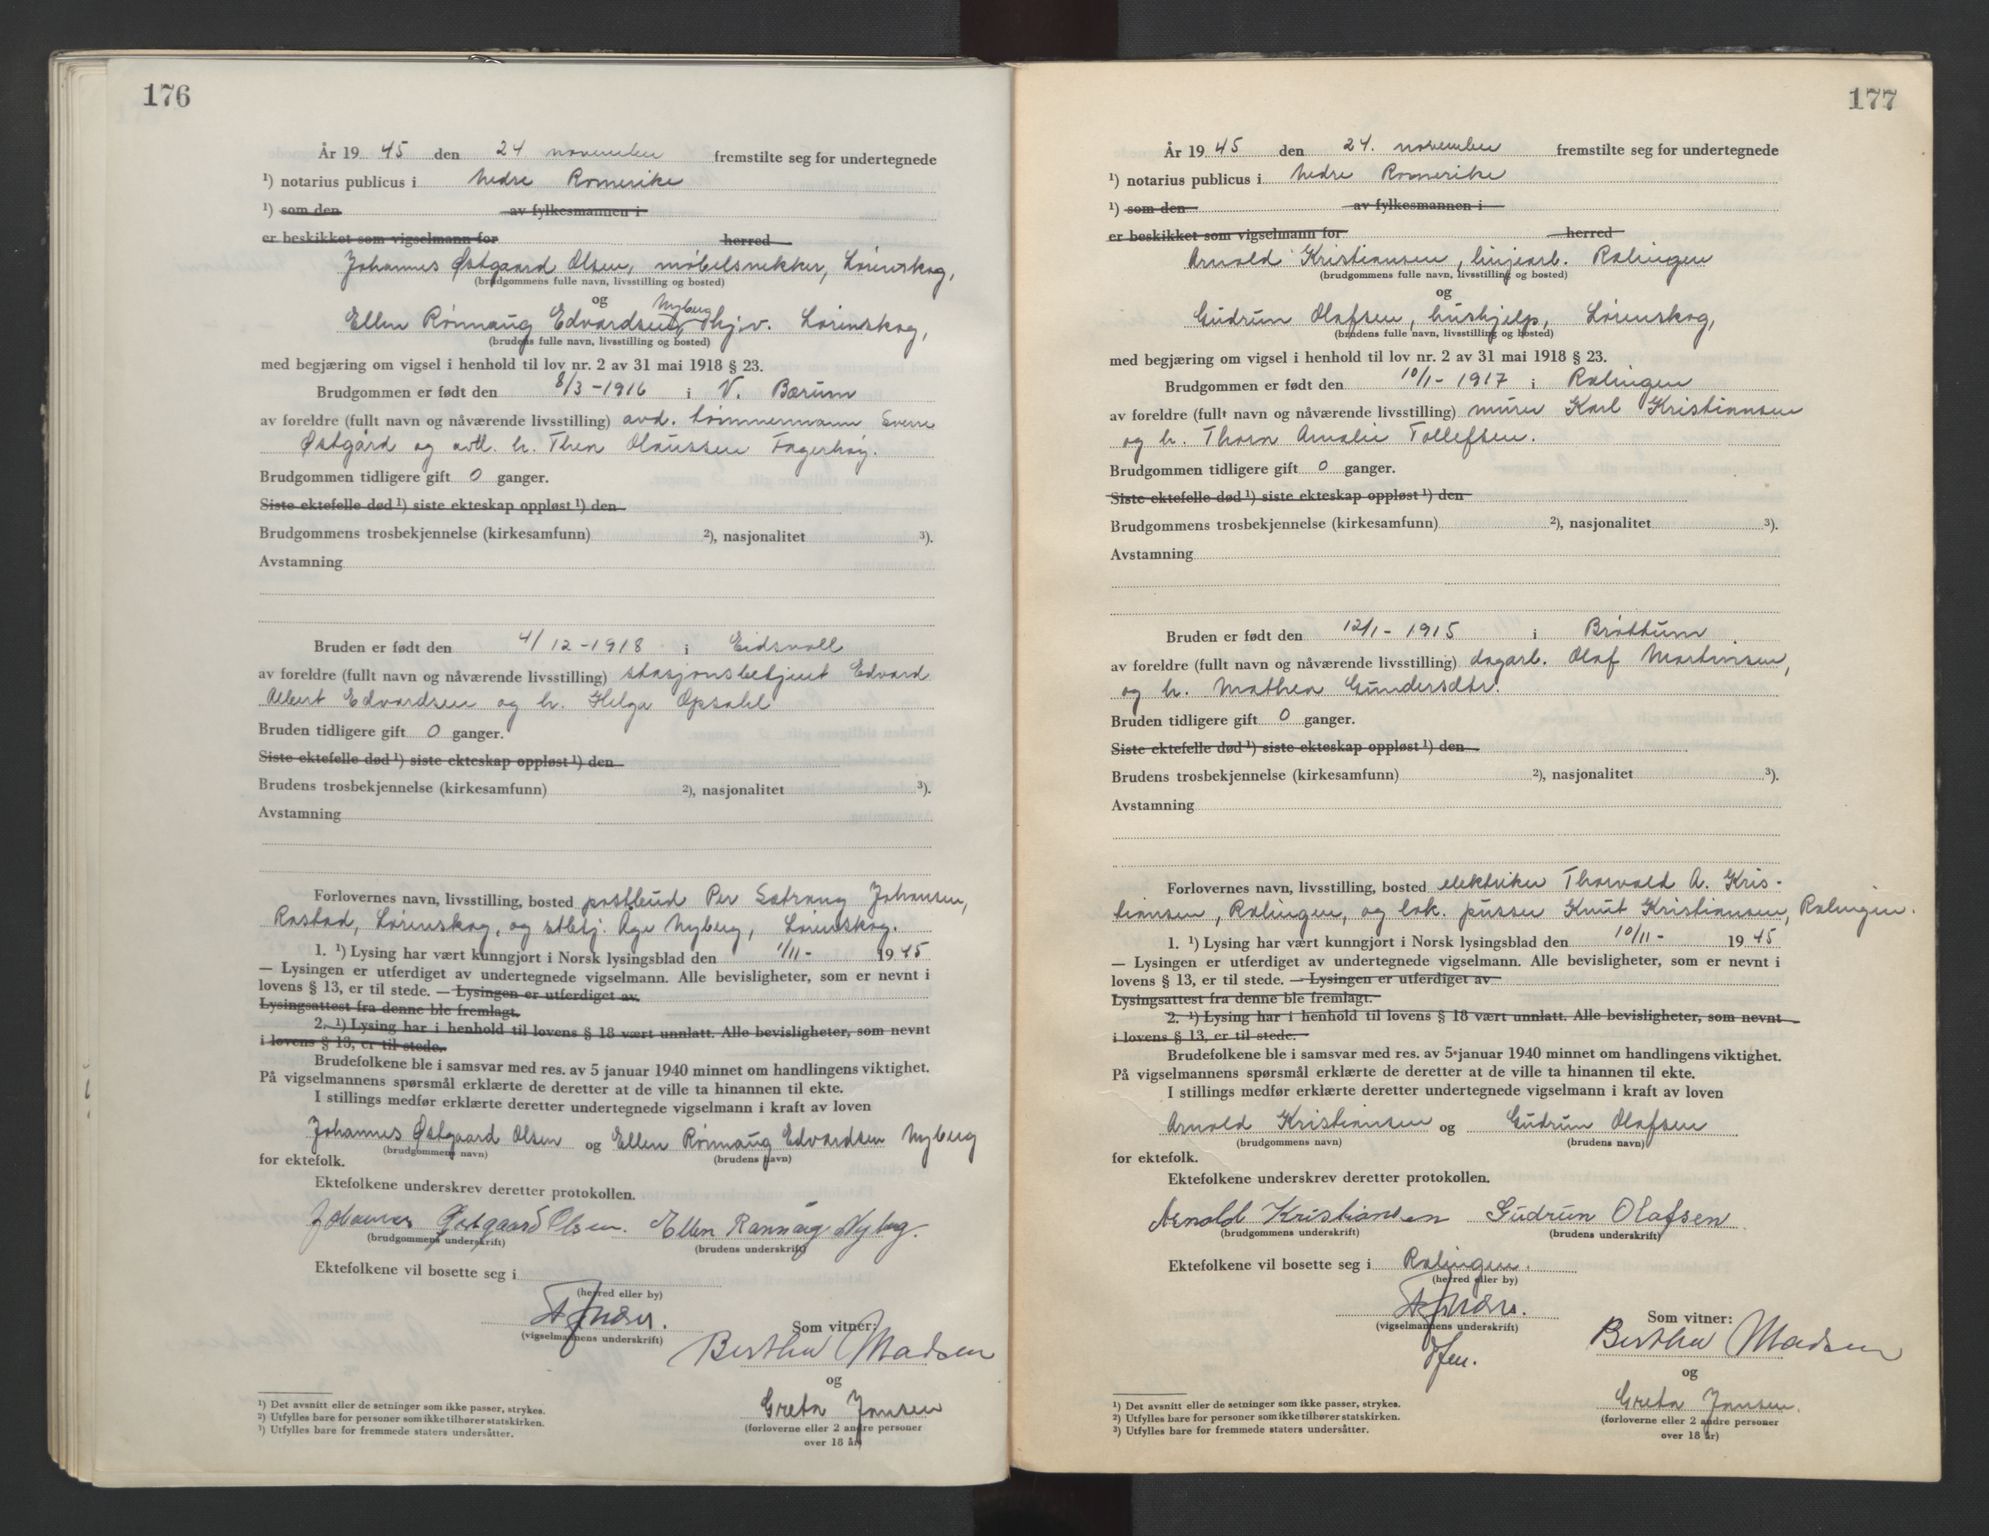 176
År 19 45 den 24 november fremstilte seg for undertegnede
¹) notarius publicus i Nedre Romerike
¹) som den av fylkesmannen i
er beskikket som vigselmann for herred
Johannes Østgaard Olsen, møbelsnekker, Lørenskog,
(brudgommens fulle navn, livsstilling og bosted)
og
Nyberg
Ellen Rønnaug Edvardsen, hjv. Lørenskog,
(brudens fulle navn, livsstilling og bosted)
med begjæring om vigsel i henhold til lov nr. 2 av 31 mai 1918 § 23.
Brudgommen er født den 8/3-1916 i V. Bærum
av foreldre (fullt navn og nåværende livsstilling) avd. tømmermann Sverre
Østgård og avd. h. Thea Olaussen Fagerhøy.
Brudgommen tidligere gift 0 ganger.
Siste ektefelle død ¹) siste ekteskap oppløst ¹) den
Brudgommens trosbekjennelse (kirkesamfunn) ²), nasjonalitet ³).
Avstamning
Bruden er født den 4/12-1918 i Eidsvoll
av foreldre (fullt navn og nåværende livsstilling) stasjonsbetjent Edvard
Albert Edvardsen og h. Helga Opsahl
Bruden tidligere gift 0 ganger.
Siste ektefelle død ¹) siste ekteskap oppløst ¹) den
Brudens trosbekjennelse (kirkesamfunn) ²), nasjonalitet ³).
Avstamning
Forlovernes navn, livsstilling, bosted postbud Per Sætrang Johansen,
Rastad, Lørenskog, og stbtj. Åge Nyberg, Lørenskog.
1. ¹) Lysing har vært kunngjort i Norsk lysingsblad den 1/11- 1945
— Lysingen er utferdiget av undertegnede vigselmann. Alle bevisligheter, som er nevnt i
lovens § 13, er til stede. — Lysingen er utferdiget av
Lysingsattest fra denne ble fremlagt.
2. ¹) Lysing har i henhold til lovens § 18 vært unnlatt. Alle bevisligheter, som nevnt
i lovens § 13, er til stede.
Brudefolkene ble i samsvar med res. av 5 januar 1940 minnet om handlingens viktighet.
På vigselmannens spørsmål erklærte de deretter at de ville ta hinannen til ekte.
I stillings medfør erklærte deretter undertegnede vigselmann i kraft av loven
Johannes Østgaard Olsen og Ellen Rønnaug Edvardsen Nyberg
(brudgommens navn) (brudens navn)
for ektefolk.
Ektefolkene underskrev deretter protokollen.
Johannes Østgaard Olsen. Ellen Rønnaug Nyberg.
(brudgommens underskrift) (brudens underskrift)
Ektefolkene vil bosette seg i
(herred eller by)
(vigselmannens underskrift)
Som vitner:
Berthe Madsen
og
Greta Jansen
(forloverne eller 2 andre personer
over 18 år)
¹) Det avsnitt eller de setninger som ikke passer, strykes.
²) Utfylles bare for personer som ikke tilhører statskirken.
³) Utfylles bare for fremmede staters undersåtter.
177
År 19 45 den 24. november fremstilte seg for undertegnede
¹) notarius publicus i Nedre Romerike
¹) som den av fylkesmannen i
er beskikket som vigselmann for herred
Arnold Kristiansen, linjearb. Rælingen
(brudgommens fulle navn, livsstilling og bosted)
og
Gudrun Olafsen, hushjelp, Lørenskog,
(brudens fulle navn, livsstilling og bosted)
med begjæring om vigsel i henhold til lov nr. 2 av 31 mai 1918 § 23.
Brudgommen er født den 10/1-1917 i Rælingen
av foreldre (fullt navn og nåværende livsstilling) murer Karl Kristiansen
og h. Thora Amalie Tollefsen.
Brudgommen tidligere gift 0 ganger.
Siste ektefelle død ¹) siste ekteskap oppløst ¹) den
Brudgommens trosbekjennelse (kirkesamfunn) ²), nasjonalitet ³).
Avstamning
Bruden er født den 12/1-1915 i Brøttum.
av foreldre (fullt navn og nåværende livsstilling) dagarb. Olaf Martinsen,
og h. Mathea Gundersdtr.
Bruden tidligere gift 0 ganger.
Siste ektefelle død ¹) siste ekteskap oppløst ¹) den
Brudens trosbekjennelse (kirkesamfunn) ²), nasjonalitet ³).
Avstamning
Forlovernes navn, livsstilling, bosted elektriker Thorvald A. Kris-
tiansen, Rælingen, og lok. pusser Knut Kristiansen, Rælingen.
1. ¹) Lysing har vært kunngjort i Norsk lysingsblad den 10/11- 1945
— Lysingen er utferdiget av undertegnede vigselmann. Alle bevisligheter, som er nevnt i
lovens § 13, er til stede. — Lysingen er utferdiget av
Lysingsattest fra denne ble fremlagt.
2. ¹) Lysing har i henhold til lovens § 18 vært unnlatt. Alle bevisligheter, som nevnt
i lovens § 13, er til stede.
Brudefolkene ble i samsvar med res. av 5 januar 1940 minnet om handlingens viktighet.
På vigselmannens spørsmål erklærte de deretter at de ville ta hinannen til ekte.
I stillings medfør erklærte deretter undertegnede vigselmann i kraft av loven
Arnold Kristiansen og Gudrun Olafsen
(brudgommens navn) (brudens navn)
for ektefolk.
Ektefolkene underskrev deretter protokollen.
Arnold Kristiansen Gudrun Olafsen
(brudgommens underskrift) (brudens underskrift)
Ektefolkene vil bosette seg i Rælingen.
(herred eller by)
(vigselmannens underskrift)
Som vitner:
Berthe Madsen
og
Greta Jansen.
(forloverne eller 2 andre personer
over 18 år)
¹) Det avsnitt eller de setninger som ikke passer, strykes.
²) Utfylles bare for personer som ikke tilhører statskirken.
³) Utfylles bare for fremmede staters undersåtter.